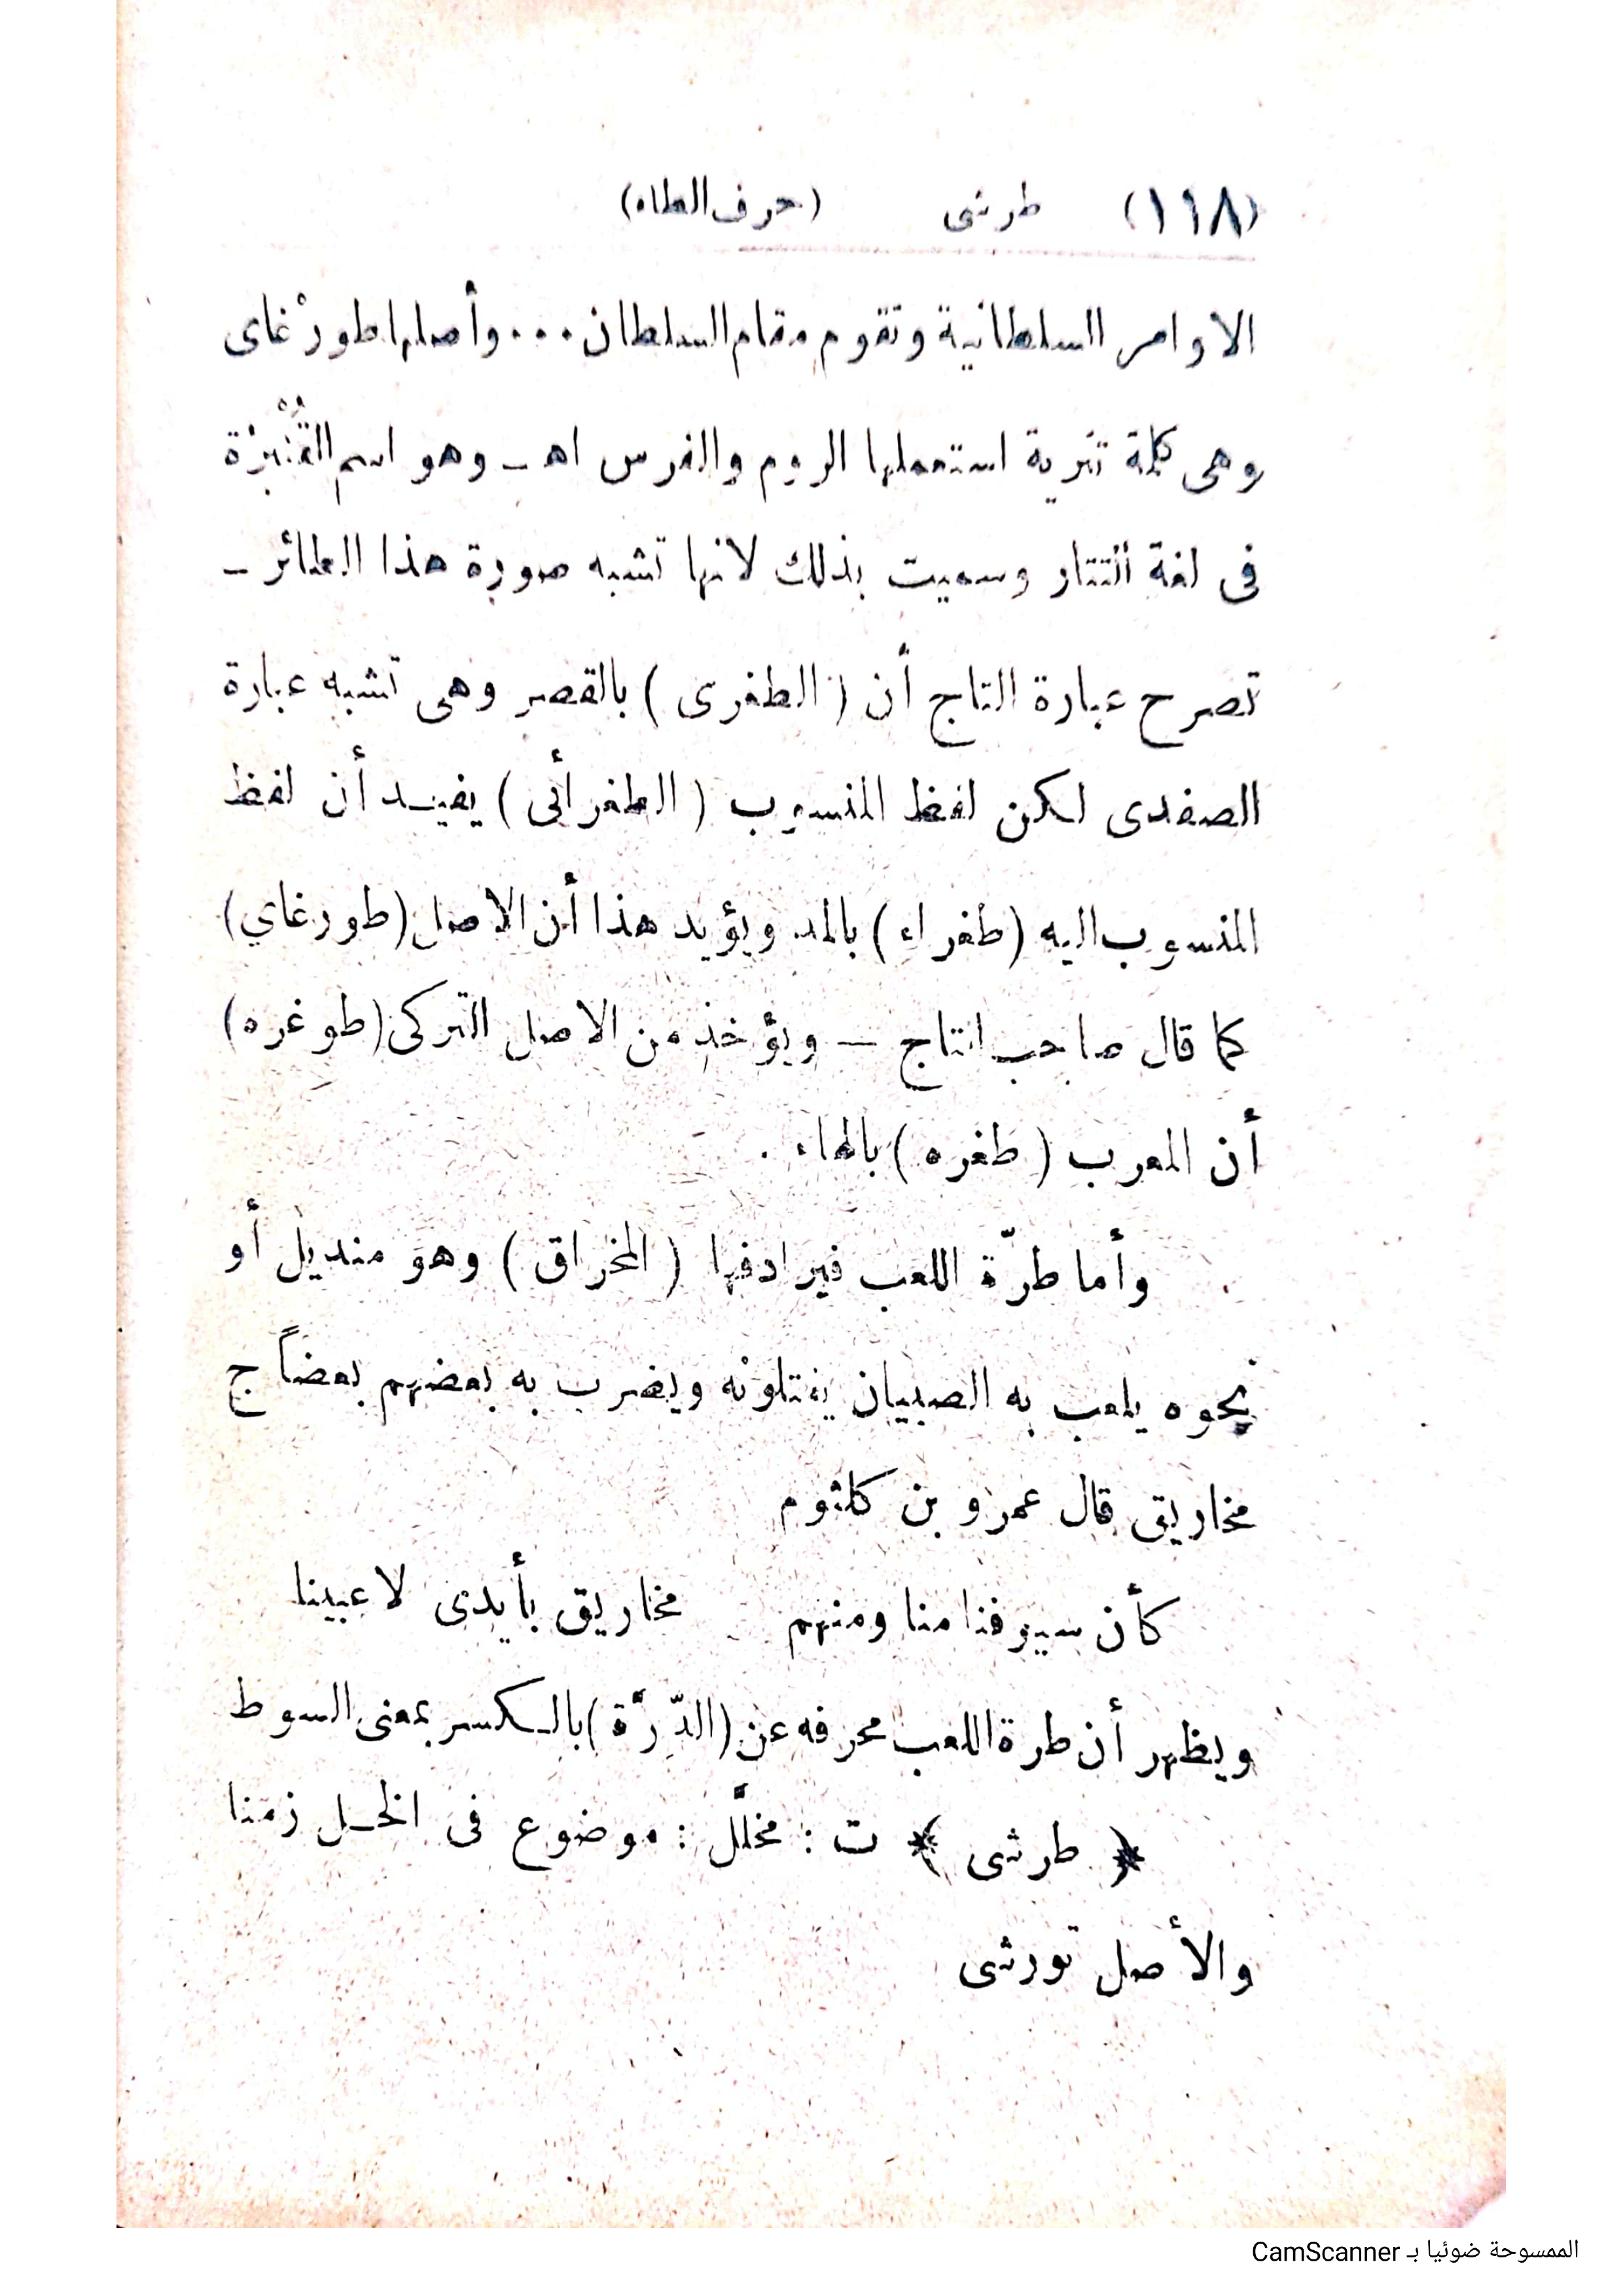 (١١٨) طرشى (حرف الطاء)
الاوامر السلطانية وتقوم مقام السلطان ... وأصلها طورْغاى
وهى كلمة تترية استعملها الروم والفرس اهـ ـ وهو اسم القُنْبرْة
فى لغة التتار وسميت بذلك لانها تشبه صورة هذا الطائر ـ
تصرح عبارة التاج أن (الطغرى) بالقصر وهى تشبه عبارة
الصفدى لكن لفظ المنسوب (الطغرأئى) يفيـد أن لفظ
المنسوب اليه (طغراء) بالمد ويؤيد هذا أن الاصل (طورغاي)
كما قال صاحب التاج — ويؤخذ من الاصل التركى (طوغره)
أن المعرب (طغره) بالهاء .
وأما طرّة اللعب فيرادفها (المخراق) وهو منديل أو
نحوه يلعب به الصبيان يفتلونه ويضرب به بعضهم بعضاً ج
مخاريق قال عمرو بن كلثوم
كأن سيوفنا منا ومنهم مخاريق بأيدى لاعبينا
ويظهر أن طرة اللعب محرفه عن (الدِّرَّة) بالـكسر بمعنى السوط
﴿ طرشى ﴾ ت : مخلَّل : موضوع فى الخـل زمنا
والأصل تورشى
الممسوحة ضوئيا بـ CamScanner